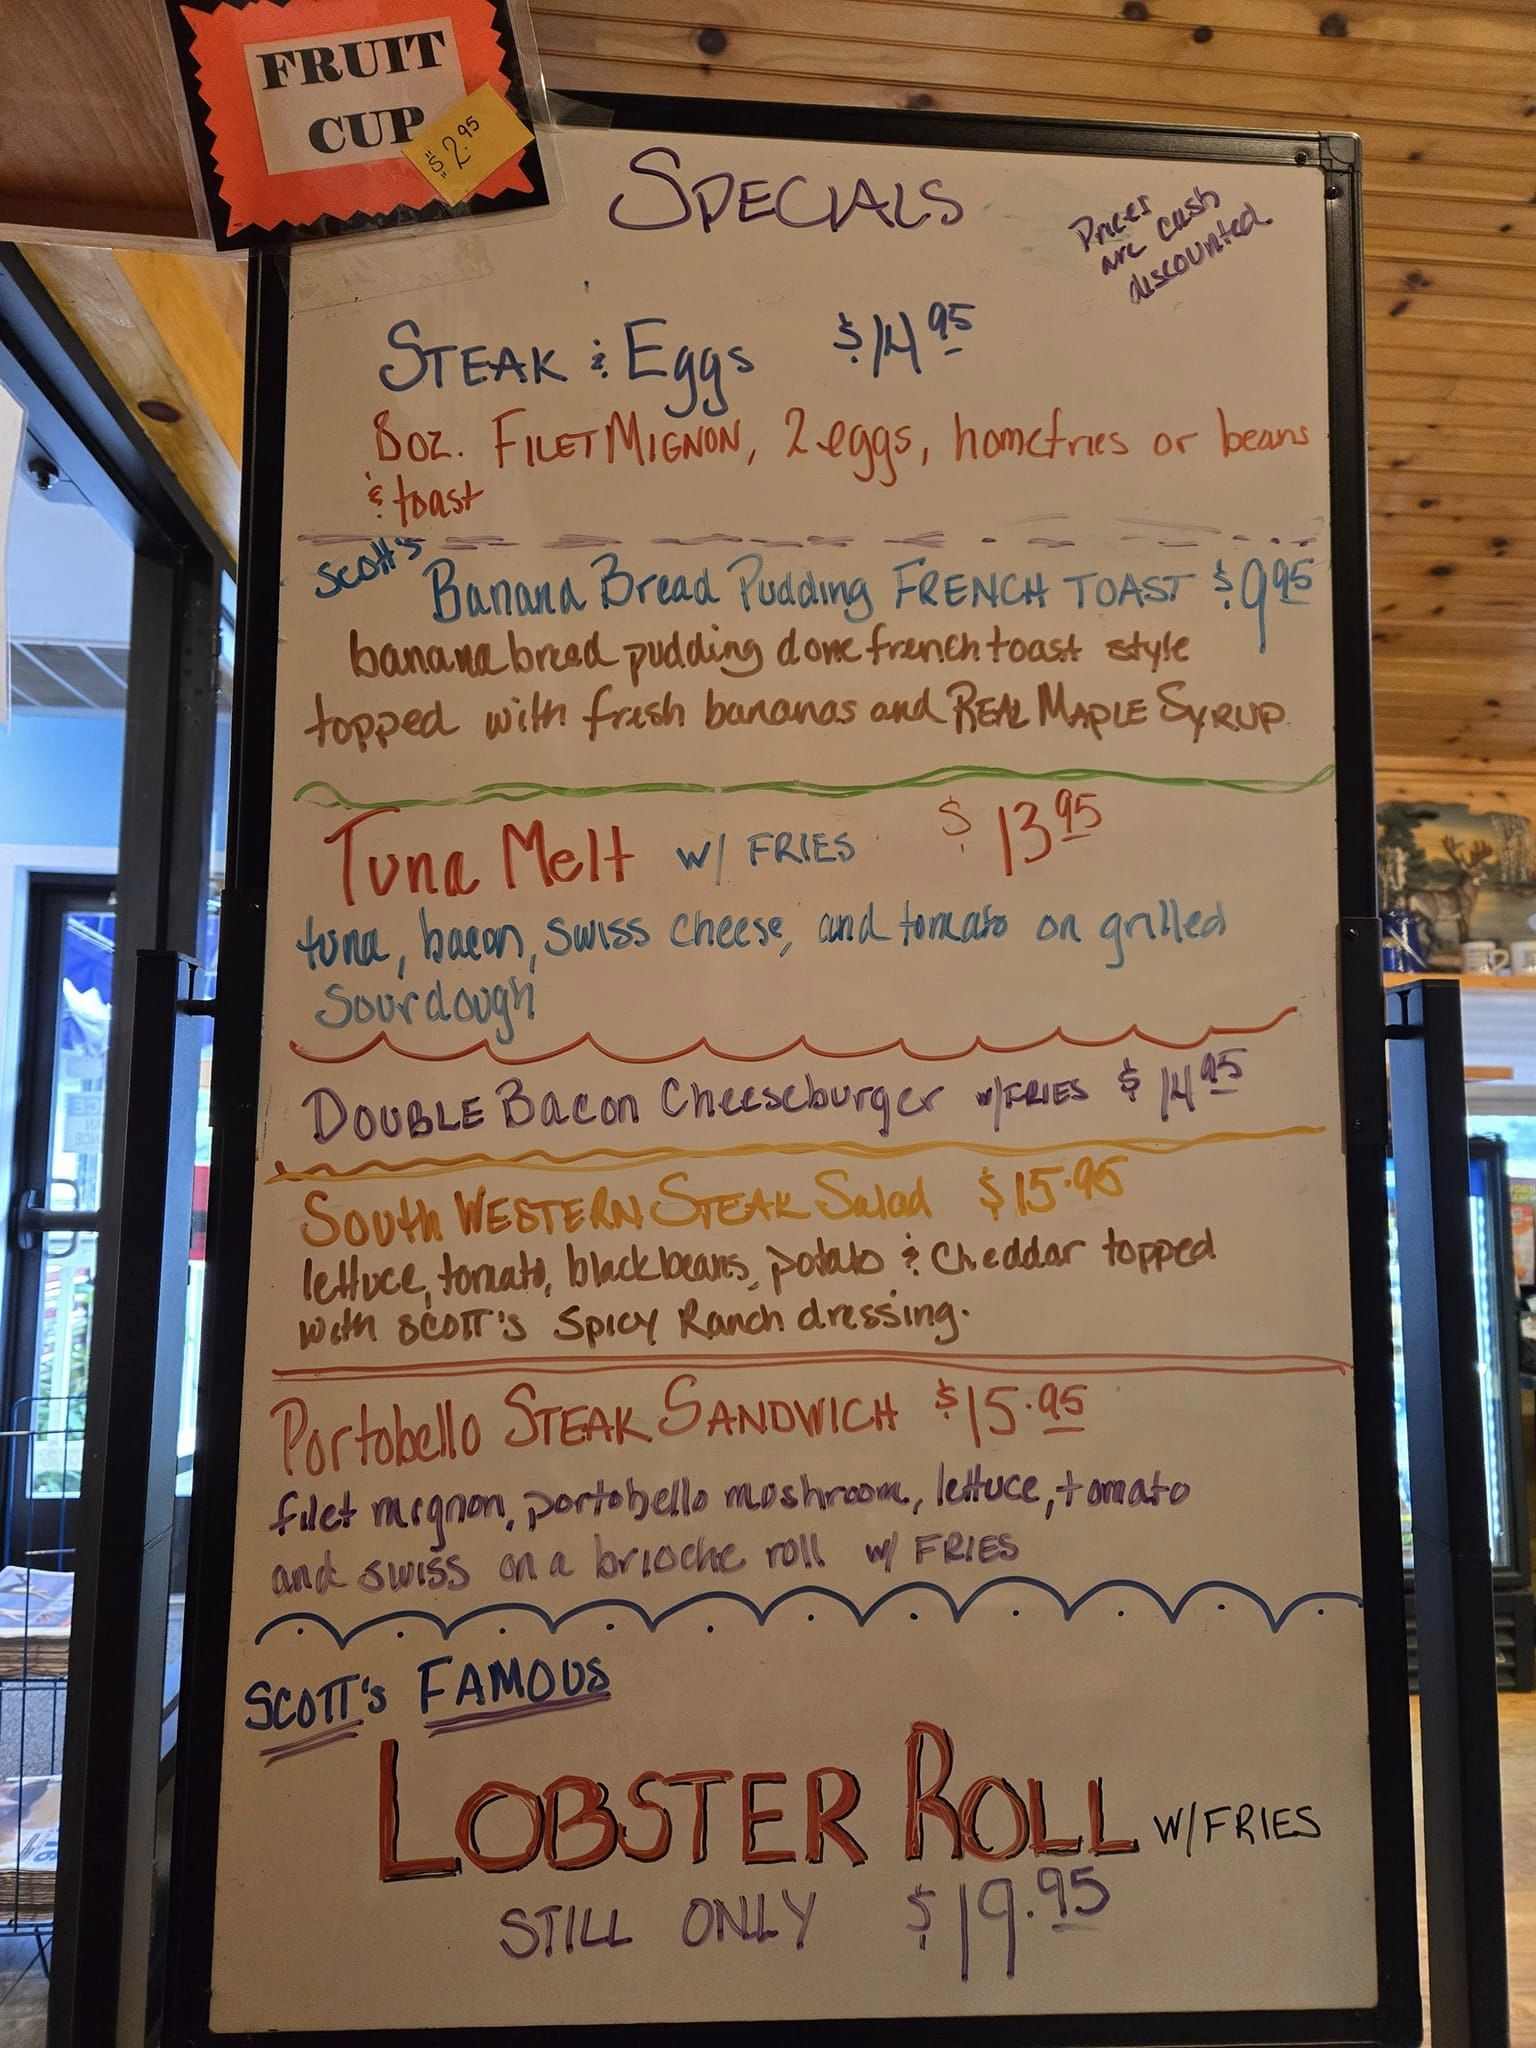 FRUIT
CUP
$2.95
SPECIALS
Prices
are cash
discounted
STEAK & Eggs $14.95
8oz. FILET MIGNON, 2 eggs, homefries or beans
& toast
Scott's
Banana Bread Pudding FRENCH TOAST $9.95
banana bread pudding done french toast style
topped with fresh bananas and REAL MAPLE SYRUP
Tuna Melt w/ FRIES $13.95
tuna, bacon, swiss cheese, and tomato on grilled
Sourdough
DOUBLE Bacon Cheeseburger w/FRIES $14.95
South WESTERN STEAK Salad $15.95
lettuce, tomato, black beans, potato & cheddar topped
with SCOTT's Spicy Ranch dressing.
Portobello STEAK SANDWICH $15.95
filet mignon, portobello mushroom, lettuce, tomato
and swiss on a brioche roll w/ FRIES
SCOTT's FAMOUS
LOBSTER ROLL W/FRIES
STILL ONLY $19.95